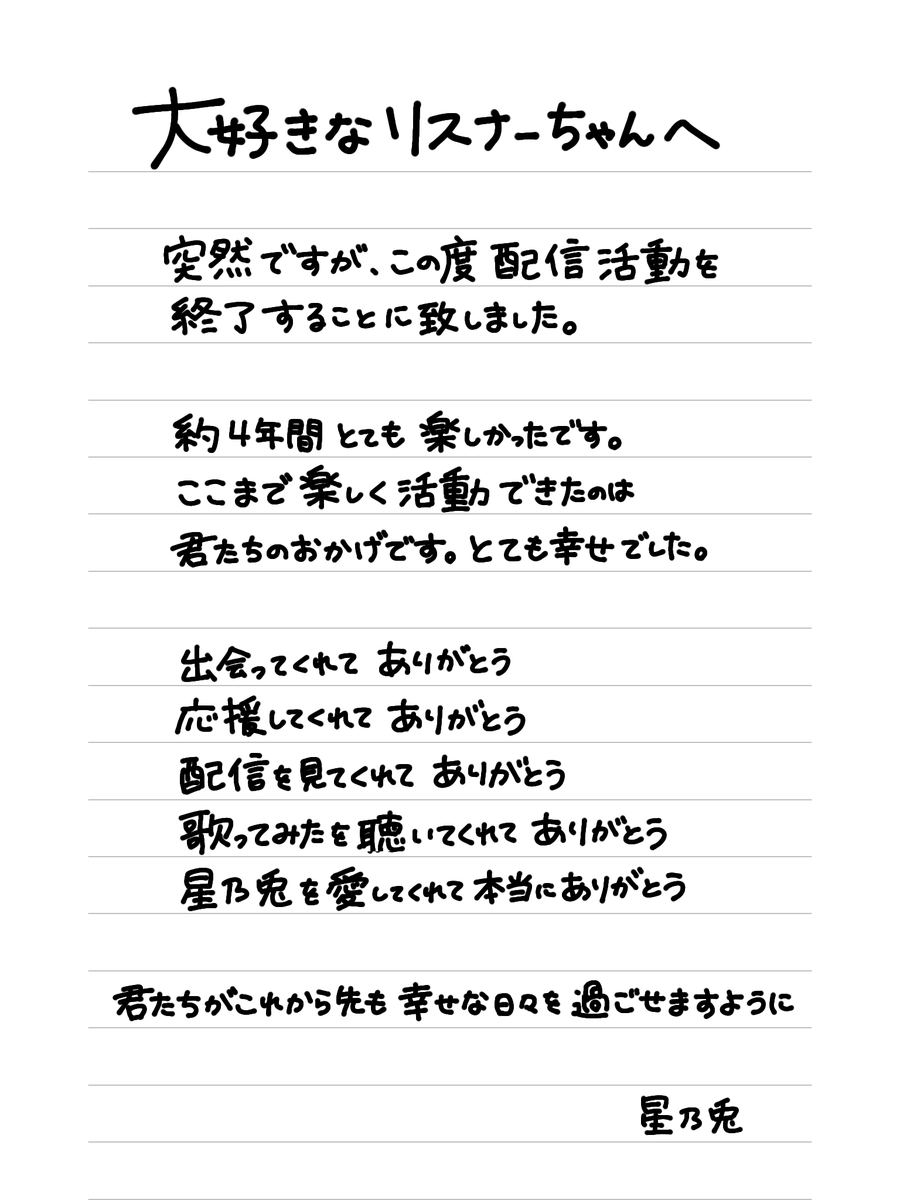 大好きなリスナーちゃんへ
突然ですが、この度 配信 活動を
終了することに致しました。
約4年間 とても 楽しかったです。
ここまで 楽しく 活動 できたのは
君たちのおかげです。とても幸せでした。
出会ってくれて ありがとう
応援してくれて ありがとう
配信を見てくれて ありがとう
歌ってみたを聴いてくれて ありがとう
星乃兎を愛してくれて 本当にありがとう
君たちがこれから先も 幸せな日々を過ごせますように
星乃兎